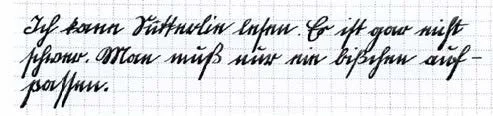 Ich kann Sütterlin lesen. Es ist gar nicht
schwer. Man muß nur ein bißchen auf-
passen.